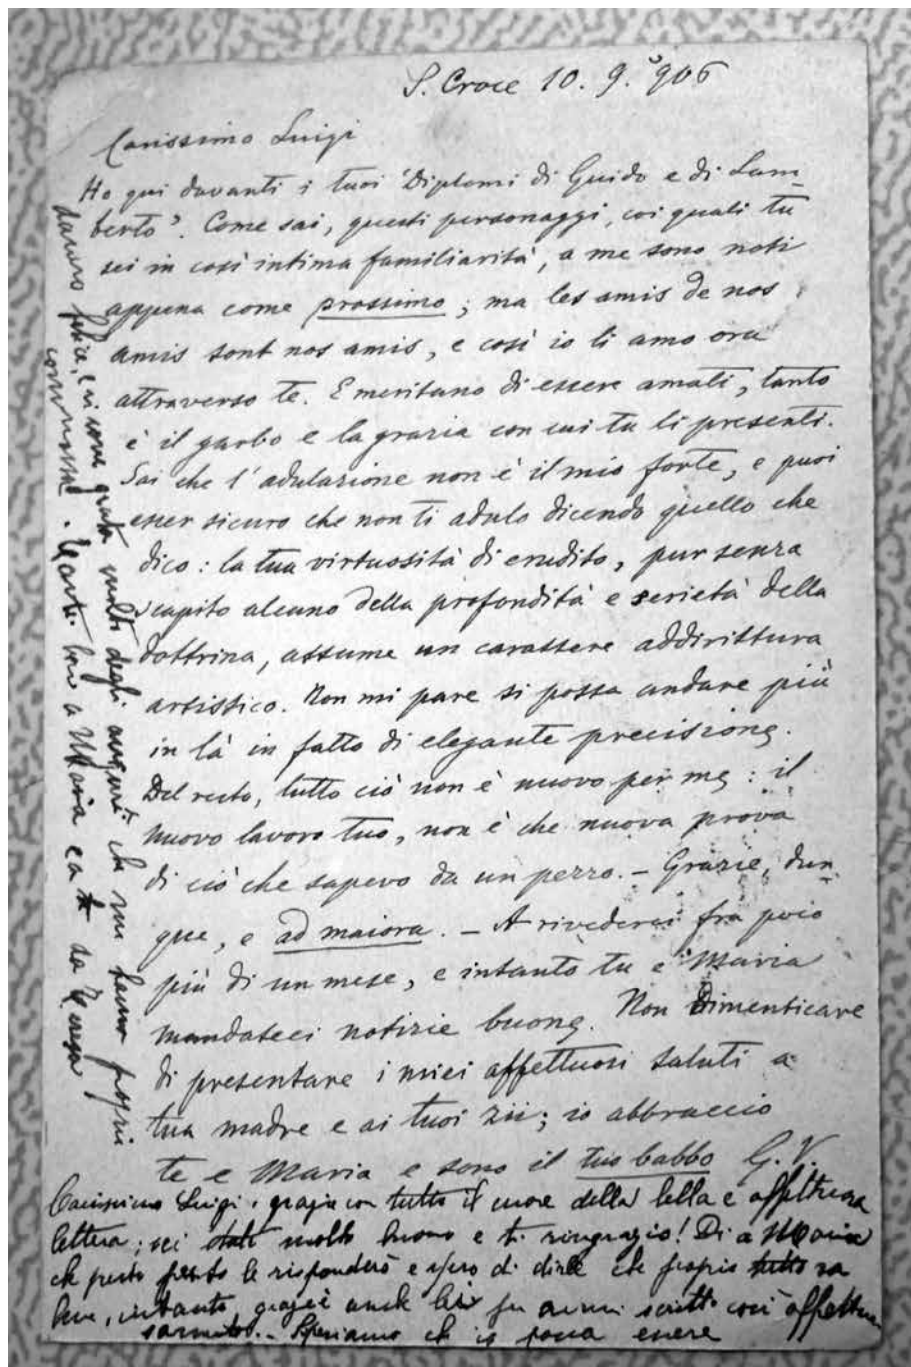 S. Croce 10. 9. 906
Carissimo Luigi
Ho qui davanti i tuoi "Diplomi di Guido e di Lam-
berto". Come sai, questi personaggi, coi quali tu
sei in così intima familiarità, a me sono noti
appena come prossimo; ma les amis de nos
amis sont nos amis, e così io li amo ora
attraverso te. E meritano di essere amati, tanto
è il garbo e la grazia con cui tu li presenti.
Sai che l'adulazione non è il mio forte, e puoi
esser sicuro che non ti adulo dicendo quello che
dico: la tua virtuosità di erudito, pur senza
scapito alcuno della profondità e serietà della
dottrina, assume un carattere addirittura
artistico. Non mi pare si possa andare più
in là in fatto di elegante precisione.
Del resto, tutto ciò non è nuovo per me: il
nuovo lavoro tuo, non è che nuova prova
di ciò che sapevo da un pezzo. – Grazie, dun-
que, e ad maiora. – A rivederci fra poco
più di un mese, e intanto tu e Maria
mandateci notizie buone. Non dimenticare
di presentare i miei affettuosi saluti a
tua madre e ai tuoi zii; io abbraccio
te e Maria e sono il tuo babbo G. V.
Carissimo Luigi, grazie con tutto il cuore della bella e affettuosa
lettera; sei molto buono e ti ringrazio! Di a Maria
che presto presto le risponderò e spero di dirle che proprio tutto va
bene, intanto, grazie anche lei per avermi scritto così affettuo-
samente. – Speriamo che io possa essere
davvero felice, e vi sono grata molto degli auguri che mi fanno proprio
commossa. Tante cose a Maria e a te da